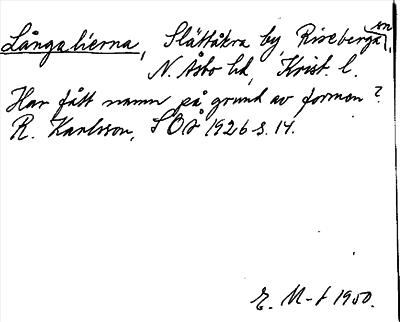 Långalierna, Slättåkra by, Riseberga sn,
N. Åsbo hd, Krist. l.
Har fått namn på grund av formen?
R. Karlsson, SOÅ 1926 s. 14.
E. M-t 1950.